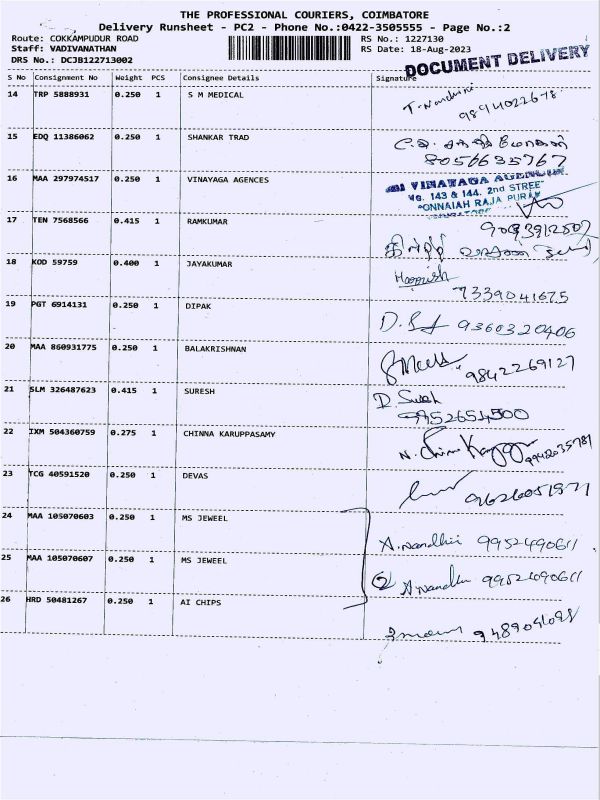 THE PROFESSIONAL COURIERS, COIMBATORE
Delivery Runsheet - PC2 - Phone No.:0422-3505555 - Page No.:2
Route: COKKAMPUDUR ROAD RS No.: 1227130
Staff: VADIVANATHAN RS Date: 18-Aug-2023
DRS No.: DCJB122713002
DOCUMENT DELIVERY
S No Consignment No Weight PCS Consignee Details Signature
14 TRP 5888931 0.250 1 S M MEDICAL
9894022678
15 EDQ 11386062 0.250 1 SHANKAR TRAD
8056635767
16 MAA 297974517 0.250 1 VINAYAGA AGENCES
VINAYAGA AGENCIES
143 & 144, 2nd STREET
PONNAIAH RAJA PURAM
17 TEN 7568566 0.415 1 RAMKUMAR
18 KOD 59759 0.400 1 JAYAKUMAR
7339041675
19 PGT 6914131 0.250 1 DIPAK
9360320406
20 MAA 860931775 0.250 1 BALAKRISHNAN
9842269127
21 SLM 326487623 0.415 1 SURESH
D. Suresh
9952654500
22 IXM 504360759 0.275 1 CHINNA KARUPPASAMY
23 TCG 40591520 0.250 1 DEVAS
9626051971
24 MAA 105070603 0.250 1 MS JEWEEL
A.nandhini 9952490611
25 MAA 105070607 0.250 1 MS JEWEEL
2 9952490611
26 HRD 50481267 0.250 1 AI CHIPS